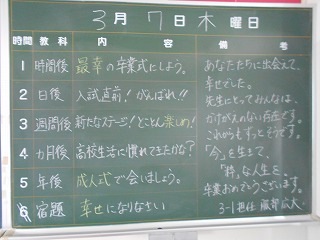 3月7日木曜日
時間 教科 内容 備考
1 時間後 最幸の卒業式にしよう。
2 日後 入試直前!がんばれ!!
3 週間後 新たなステージ!とことん楽しめ!
4 カ月後 高校生活に慣れてきたかな?
5 年後 成人式で会いましょう。
6 宿題 幸せになりなさい
あなたたちに出会えて、
幸せでした。
先生にとってみんなは、
かけがえのない存在です。
これからもずっとそうです。
「今」を生きて、
「粋」な人生を、
卒業おめでとうございます。
3-1担任 服部広大